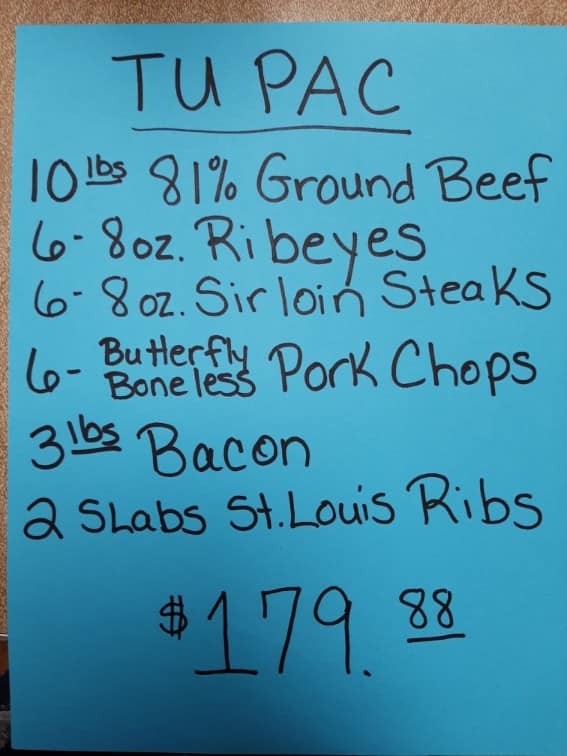 TU PAC
10 lbs 81% Ground Beef
6-8oz. Ribeyes
6-8oz. Sirloin Steaks
6- Butterfly Boneless Pork Chops
3 lbs Bacon
2 Slabs St. Louis Ribs
$179.88